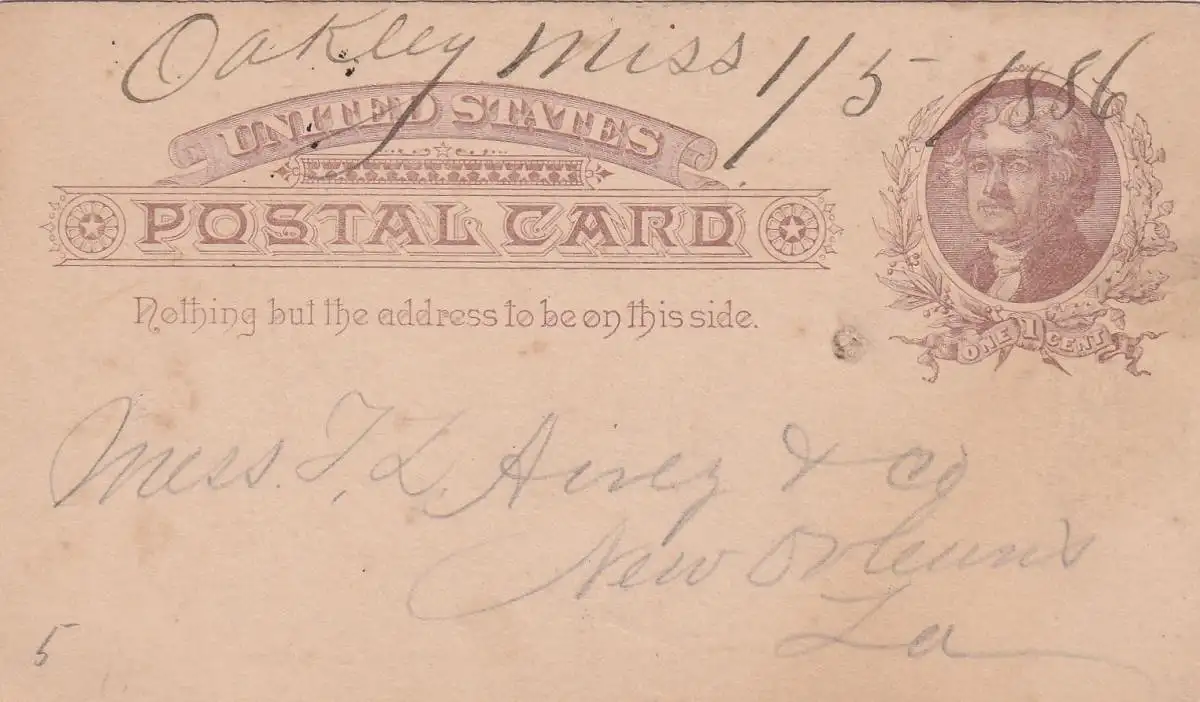 Oakley Miss 1/5 1886
UNITED STATES
POSTAL CARD
Nothing but the address to be on this side.
ONE 1 CENT
Mess. T. L. Airey & Co
New Orleans
La
5